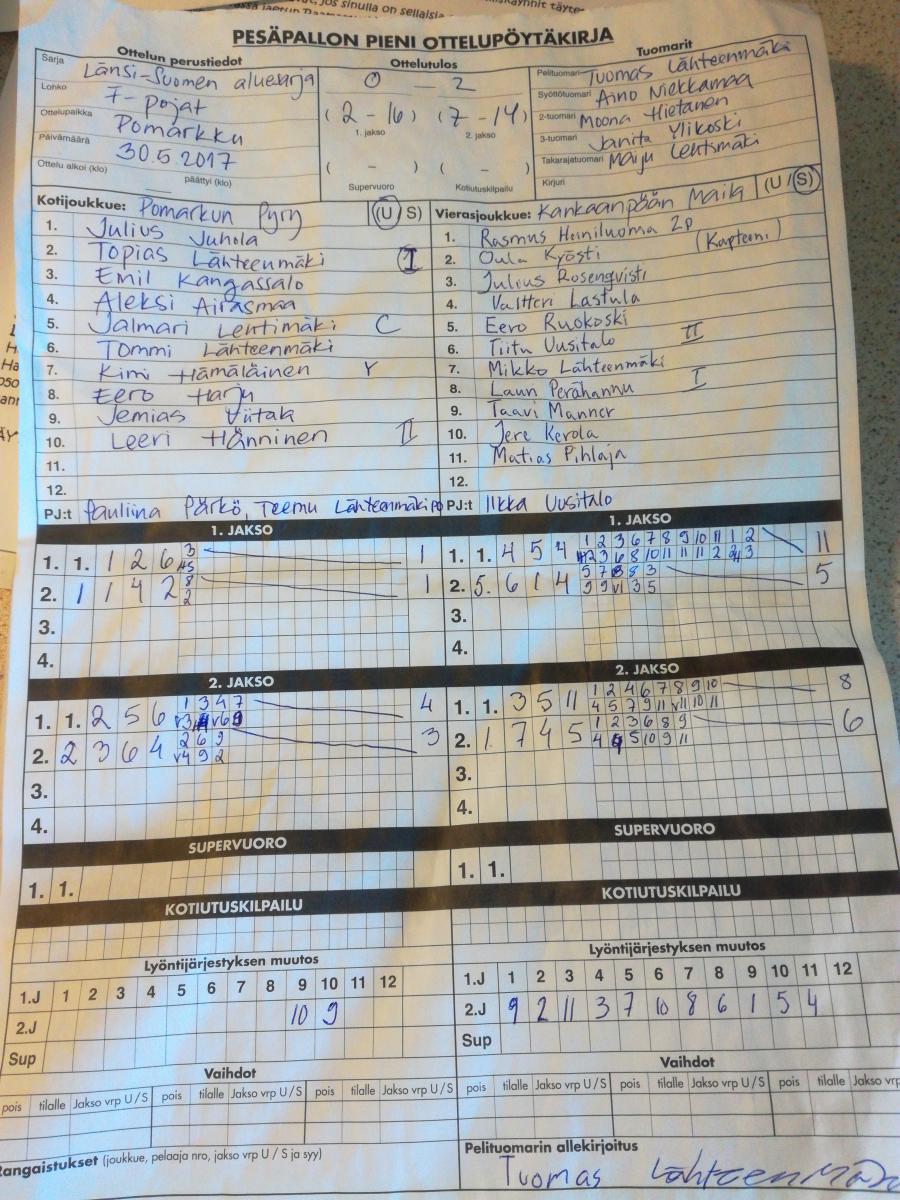 PESÄPALLON PIENI OTTELUPÖYTÄKIRJA
Ottelun perustiedot
Sarja Länsi-Suomen aluesarja
Lohko F-pojat
Ottelupaikka Pomarkku
Päivämäärä 30.5.2017
Ottelu alkoi (klo) päättyi (klo)
Ottelutulos
0 - 2
(2 - 16) (7 - 14)
1. jakso 2. jakso
( - ) ( - )
Supervuoro Kotiutuskilpailu
Tuomarit
Pelituomari Tuomas Lähteenmäki
Syöttötuomari Aino Niekkamaa
2-tuomari Moona Hietanen
3-tuomari Janita Ylikoski
Takarajatuomari Maiju Lehtimäki
Kirjuri
Kotijoukkue: Pomarkun Pyry (U / S)
1. Julius Juhola
2. Topias Lähteenmäki I
3. Emil Kangassalo
4. Aleksi Airasmaa
5. Jalmari Lehtimäki C
6. Tommi Lähteenmäki
7. Kimi Hämäläinen Y
8. Eero Harju
9. Jemias Viitala
10. Leeri Hänninen II
11.
12.
PJ:t Pauliina Pärkö, Teemu Lähteenmäki
Vierasjoukkue: Kankaanpään Maila (U / S)
1. Rasmus Heiniluoma 2P
2. Oula Krösti (Kapteeni)
3. Julius Rosenqvisti
4. Valtteri Lastula
5. Eero Ruokoski
6. Tiitu Uusitalo II
7. Mikko Lähteenmäki
8. Lauri Perähannu I
9. Taavi Manner
10. Jere Kerola
11. Matias Pihlaja
12.
PJ:t Ilkka Uusitalo
1. JAKSO
1. 1. 1 2 6 3 1
2. 1 1 4 2 8 2 1
3.
4.
1. JAKSO
1. 1. 4 5 4 1 2 3 6 7 8 9 10 11 1 2 11
2 3 6 8 10 11 11 11 2 3
2. 5. 6 1 4 5 7 8 8 3 5
9 9 V1 3 5
3.
4.
2. JAKSO
1. 1. 2 5 6 1 3 4 7 4
V3 V6 9
2. 2 3 6 4 2 6 9 3
V4 9 2
3.
4.
2. JAKSO
1. 1. 3 5 11 1 2 4 6 7 8 9 10 8
4 5 7 9 11 V11 10 11
2. 1. 7 4 5 1 2 3 6 8 9 6
4 5 10 9 11
3.
4.
SUPERVUORO
1. 1.
SUPERVUORO
1. 1.
KOTIUTUSKILPAILU
KOTIUTUSKILPAILU
Lyöntijärjestyksen muutos
1.J 1 2 3 4 5 6 7 8 9 10 11 12
2.J 10 9
Sup
Lyöntijärjestyksen muutos
1.J 1 2 3 4 5 6 7 8 9 10 11 12
2.J 9 2 11 3 7 10 8 6 1 5 4
Sup
Vaihdot
pois tilalle Jakso vrp U / S pois tilalle Jakso vrp U / S pois tilalle Jakso vrp U / S
Vaihdot
pois tilalle Jakso vrp U / S pois tilalle Jakso vrp U / S pois tilalle Jakso vrp
Rangaistukset (joukkue, pelaaja nro, jakso vrp U / S ja syy)
Pelituomarin allekirjoitus
Tuomas Lähteenmäki